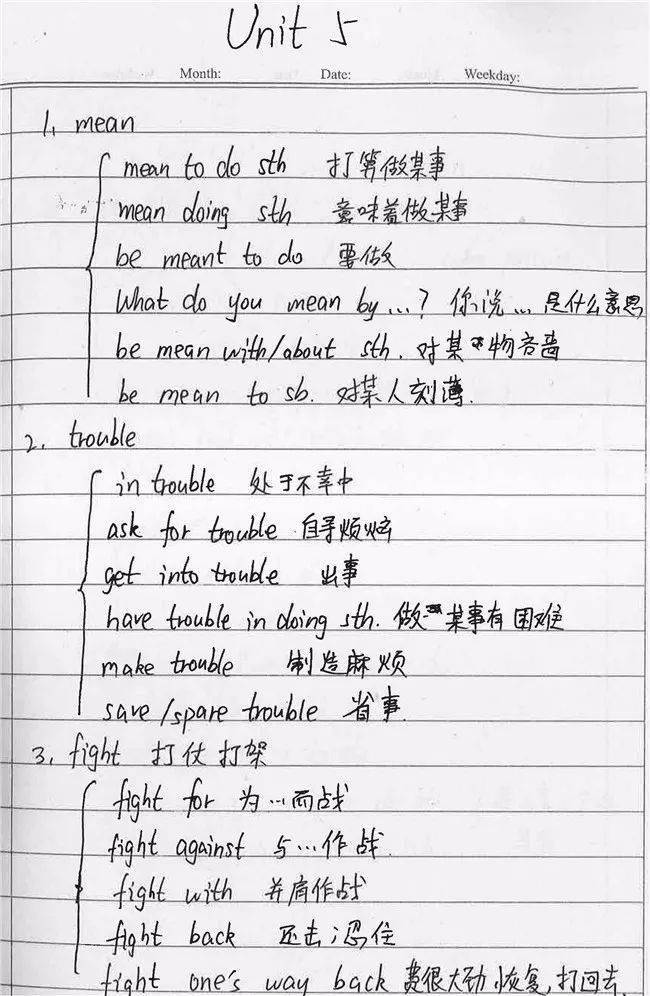 Unit 5
Month: Date: Weekday:
1, mean
mean to do sth 打算做某事
mean doing sth 意味着做某事
be meant to do 要做
What do you mean by...? 你说...是什么意思
be mean with/about sth. 对某物吝啬
be mean to sb. 对某人刻薄.
2, trouble
in trouble 处于不幸中
ask for trouble 自寻烦恼
get into trouble 出事
have trouble in doing sth. 做某事有困难
make trouble 制造麻烦
save/spare trouble 省事.
3, fight 打仗 打架
fight for 为...而战
fight against 与...作战.
fight with 并肩作战
fight back 还击;忍住
fight one's way back 费很大劲恢复,打回去.